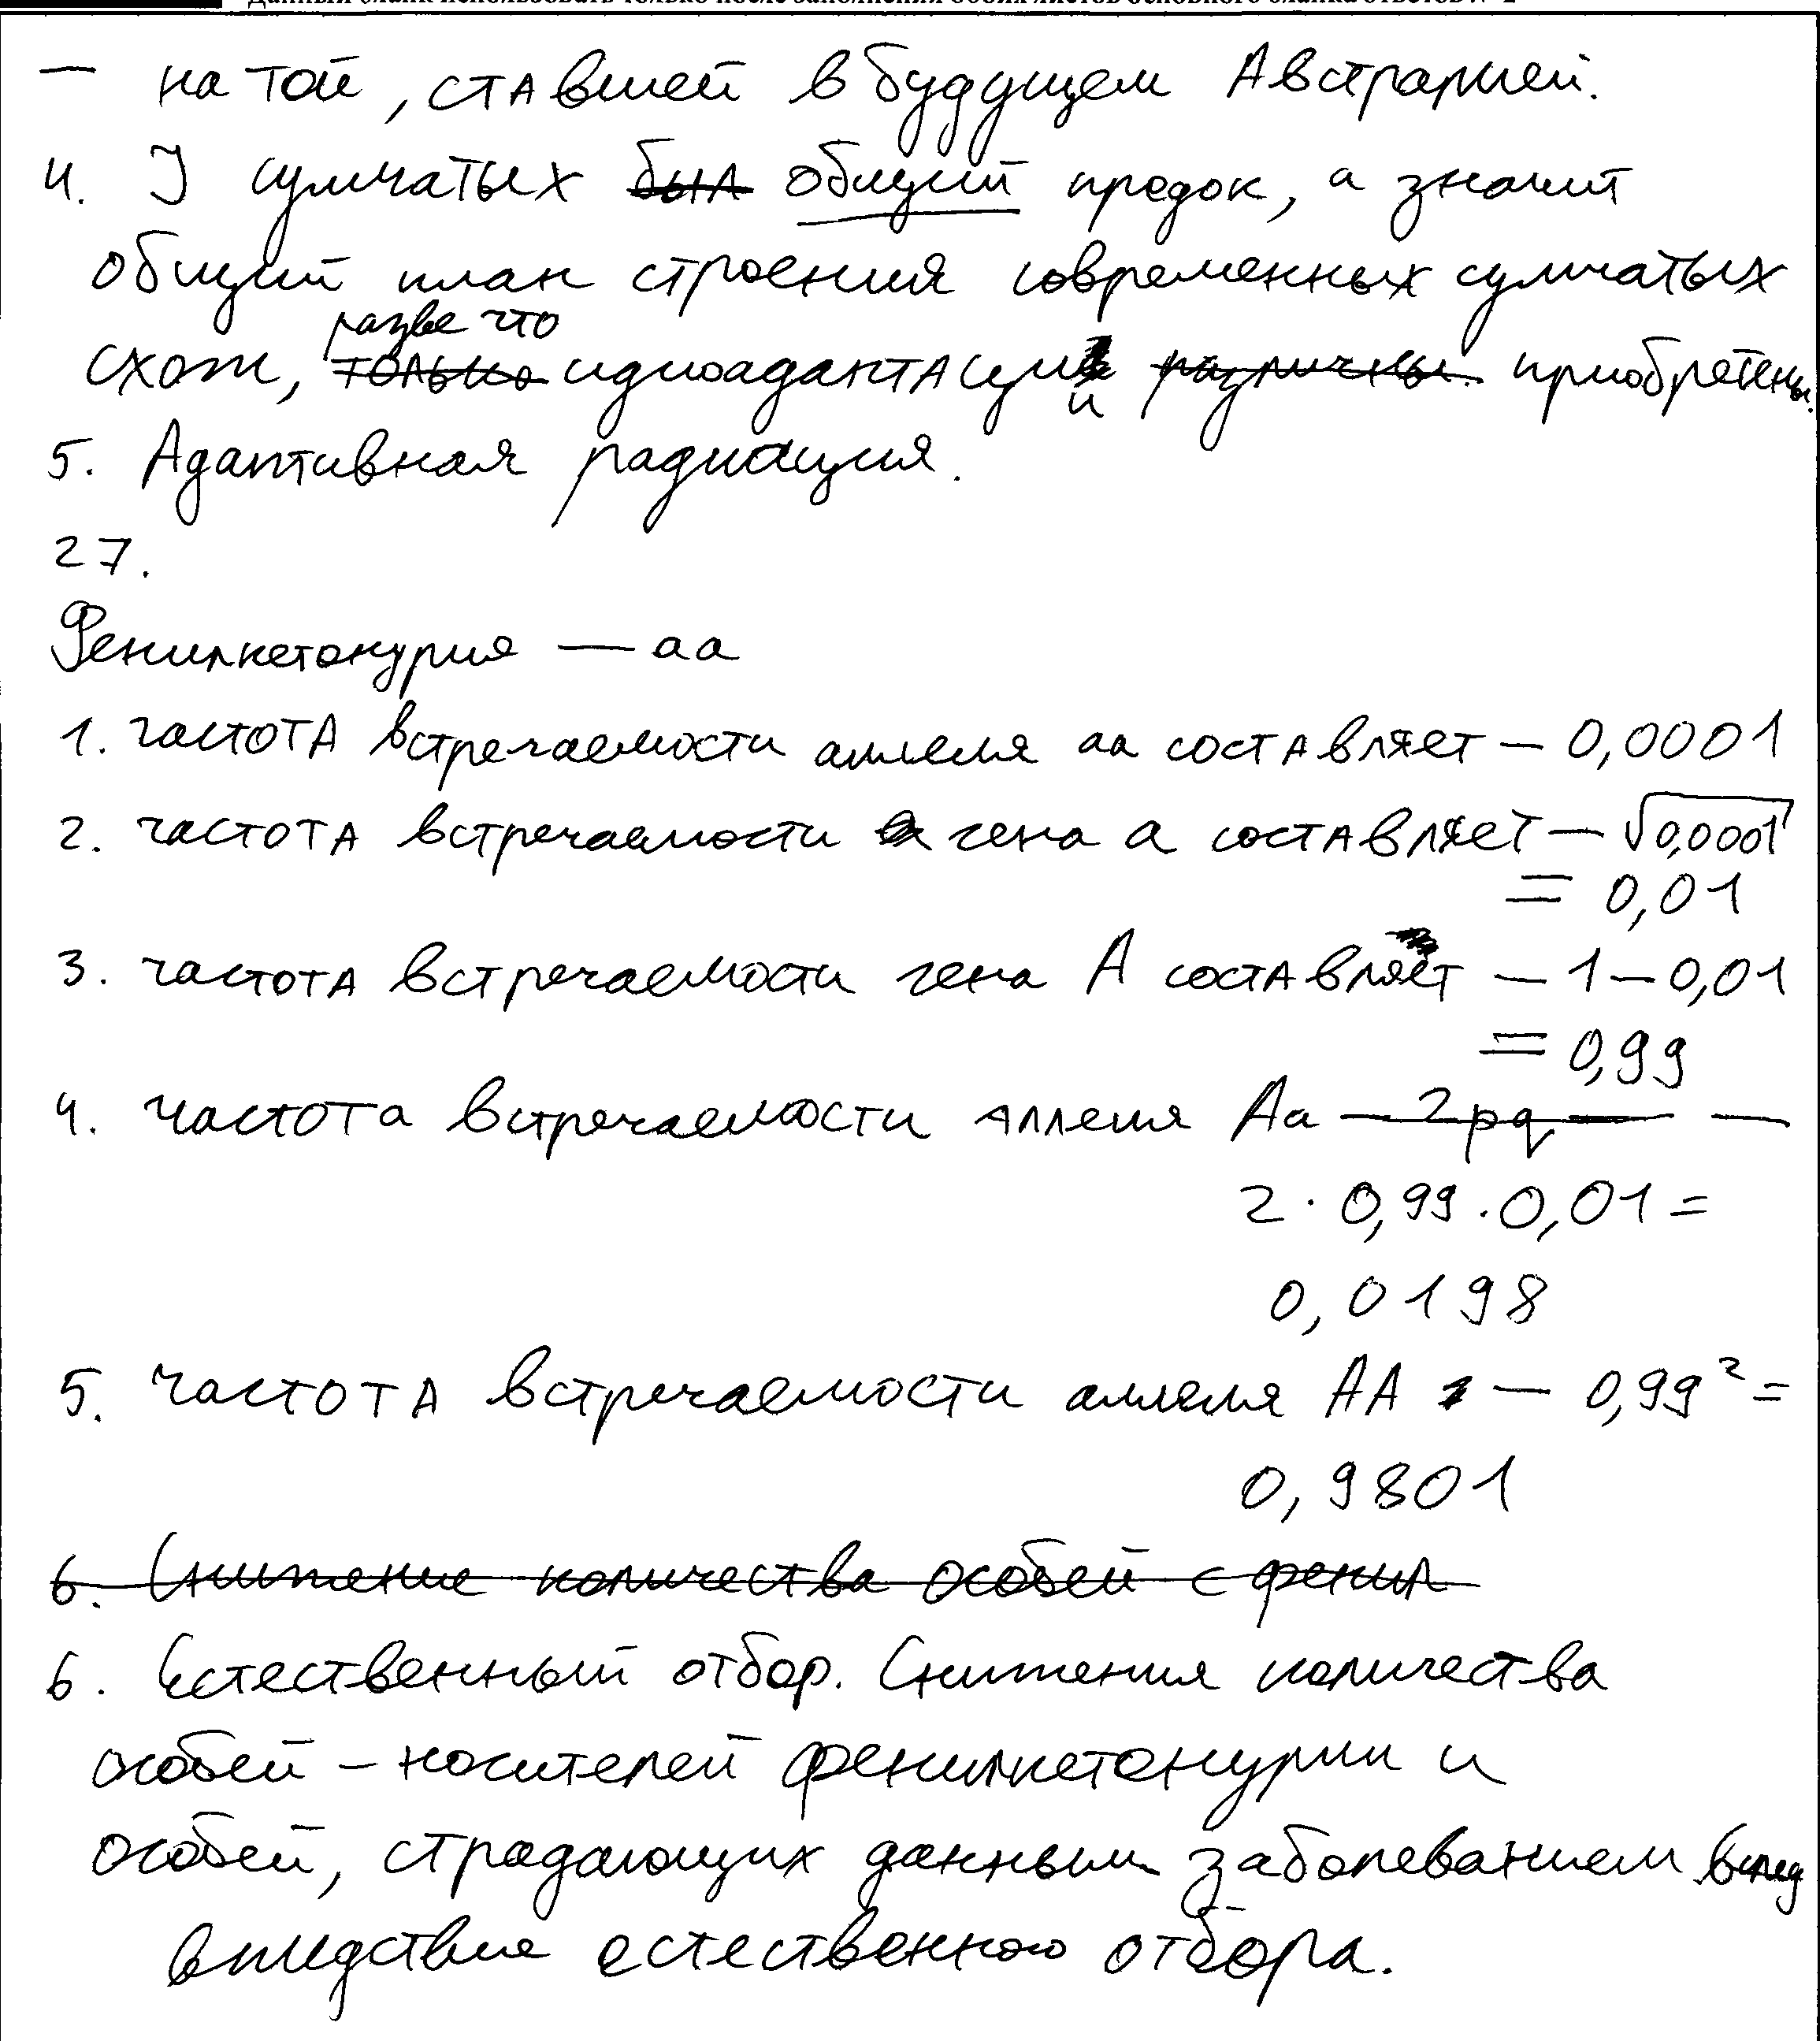 — на той, ставшей в будущем Австралией.
4. У сумчатых был общий предок, а значит
общий план строения современных сумчатых
разве что
схож, только идиоадаптации различны. приобретены.
5. Адаптивная радиация.
27.
Фенилкетонурия — аа
1. частота встречаемости аллеля аа составляет — 0,0001
2. частота встречаемости гена а составляет — √0,0001
= 0,01
3. частота встречаемости гена А составляет — 1 — 0,01
= 0,99
4. частота встречаемости аллеля Аа — 2pq — —
2 · 0,99 · 0,01 =
0,0198
5. частота встречаемости аллеля АА — 0,99² =
0,9801
6. Снижение количества особей с фенил
6. Естественный отбор. Снижения количества
особей – носителей фенилкетонурии и
особей, страдающих данным заболеванием вслед
вследствие естественного отбора.